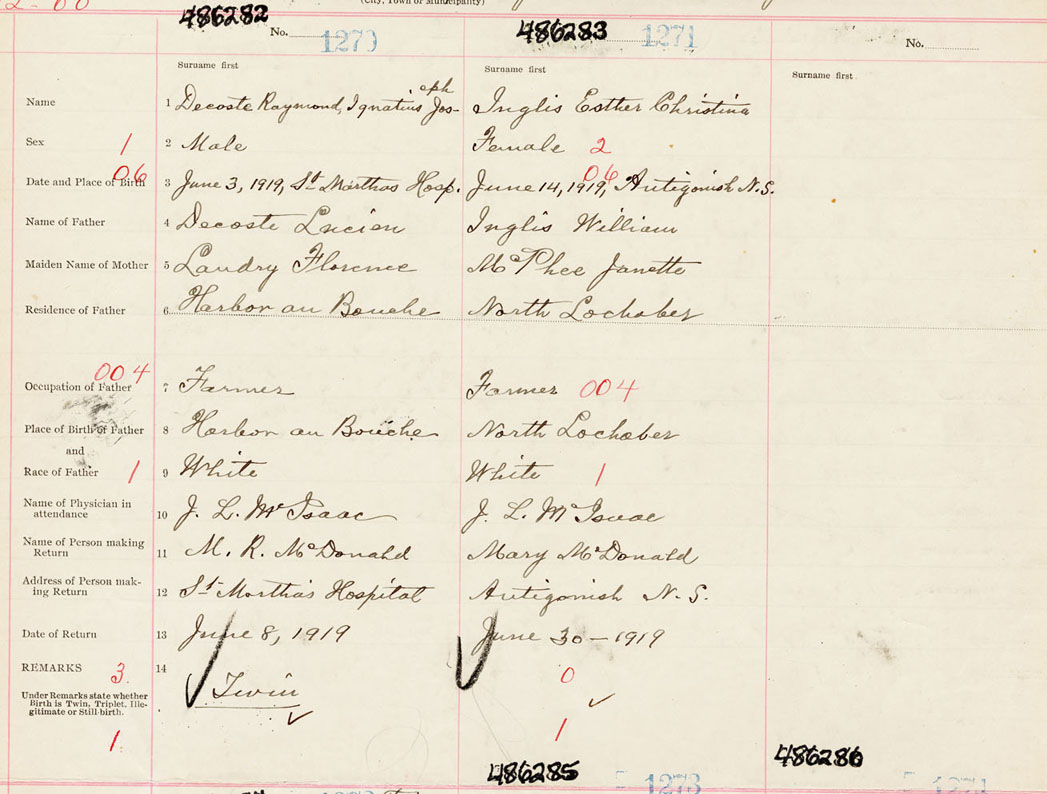 (City, Town or Municipality)
486282
No. 1270
486283
1271
No.
Surname first
Surname first
Surname first
Name 1 Decoste Raymond, Ignatius Jos-eph Inglis Esther Christina
Sex 1 2 Male Female 2
Date and Place of Birth 06 3 June 3, 1919, St Marthas Hosp. June 14, 1919, 06 Antigonish N.S.
Name of Father 4 Decoste Lucien Inglis William
Maiden Name of Mother 5 Landry Florence McPhee Janette
Residence of Father 6 Harbor au Bouche North Lochaber
004
Occupation of Father 7 Farmer Farmer 004
Place of Birth of Father 8 Harbor au Bouche North Lochaber
and
Race of Father 1 9 White White 1
Name of Physician in
attendance 10 J. L. McIsaac J. L. McIsaac
Name of Person making
Return 11 M. R. McDonald Mary McDonald
Address of Person mak-
ing Return 12 St Martha's Hospital Antigonish N.S.
Date of Return 13 June 8, 1919 June 30 - 1919
REMARKS 3. 14 Twin 0
Under Remarks state whether
Birth is Twin, Triplet, Ille-
gitimate or Still-birth.
1. 1
486285
1273
486286